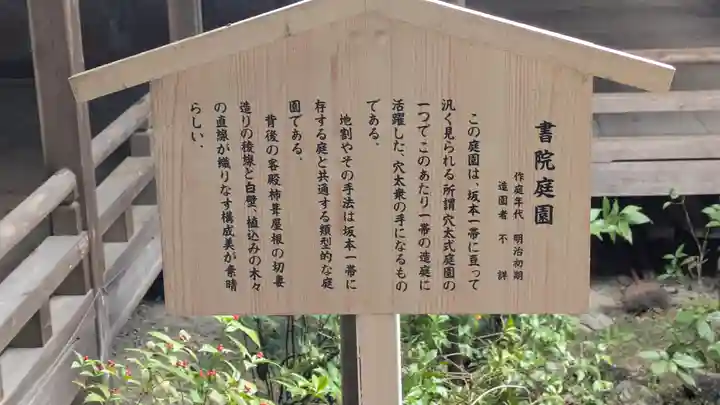 書院庭園
作庭年代 明治初期
造園者 不詳
この庭園は、坂本一帯に亘って
汎く見られる所謂穴太式庭園の
一つでこのあたり一帯の造庭に
活躍した、穴太衆の手になるもの
である。
地割やその手法は坂本一帯に
存する庭と共通する類型的な庭
園である。
背後の客殿柿葺屋根の切妻
造りの稜線と白壁、植込みの木々
の直線が織りなす構成美が素晴
らしい。